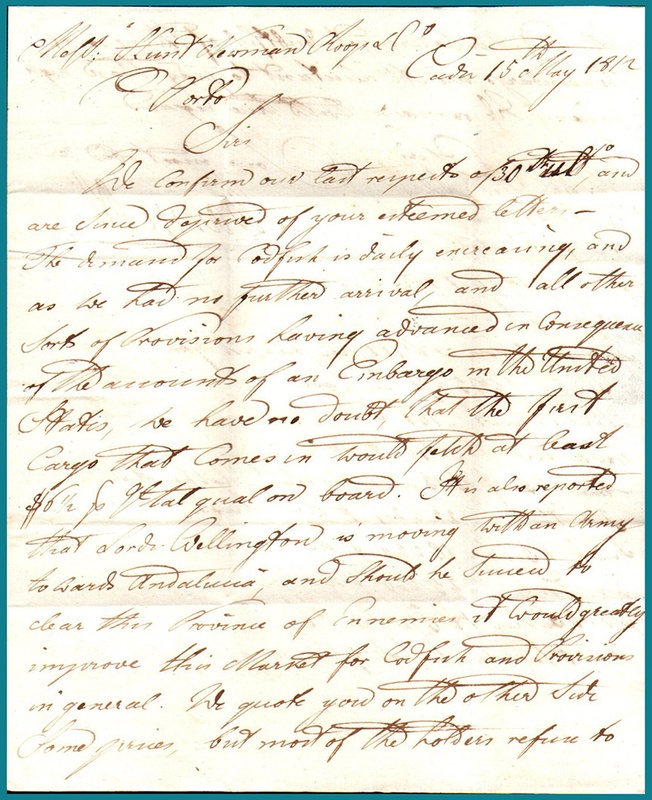 Messrs. Hunt Newman Roope & Co.
Cadiz 15th May 1812
Porto
Sirs
We confirm our last respects of 30th ulto, and
are since deprived of your esteemed letters –
The demand for Codfish is daily encreasing, and
as we had no further arrival, and all other
sorts of Provisions having advanced in Consequence
of the accounts of an Embargo in the United
States, we have no doubt, that the first
Cargo that comes in would fetch at least
$6½ p Qtal qual on board. It is also reported
that Lord Wellington is moving with an Army
towards Andalucia, and should he succeed to
clear this Province of Ennemies it would greatly
improve this Market for Codfish and Provisions
in general. We quote you on the other side
some prices, but most of the holders refuse to